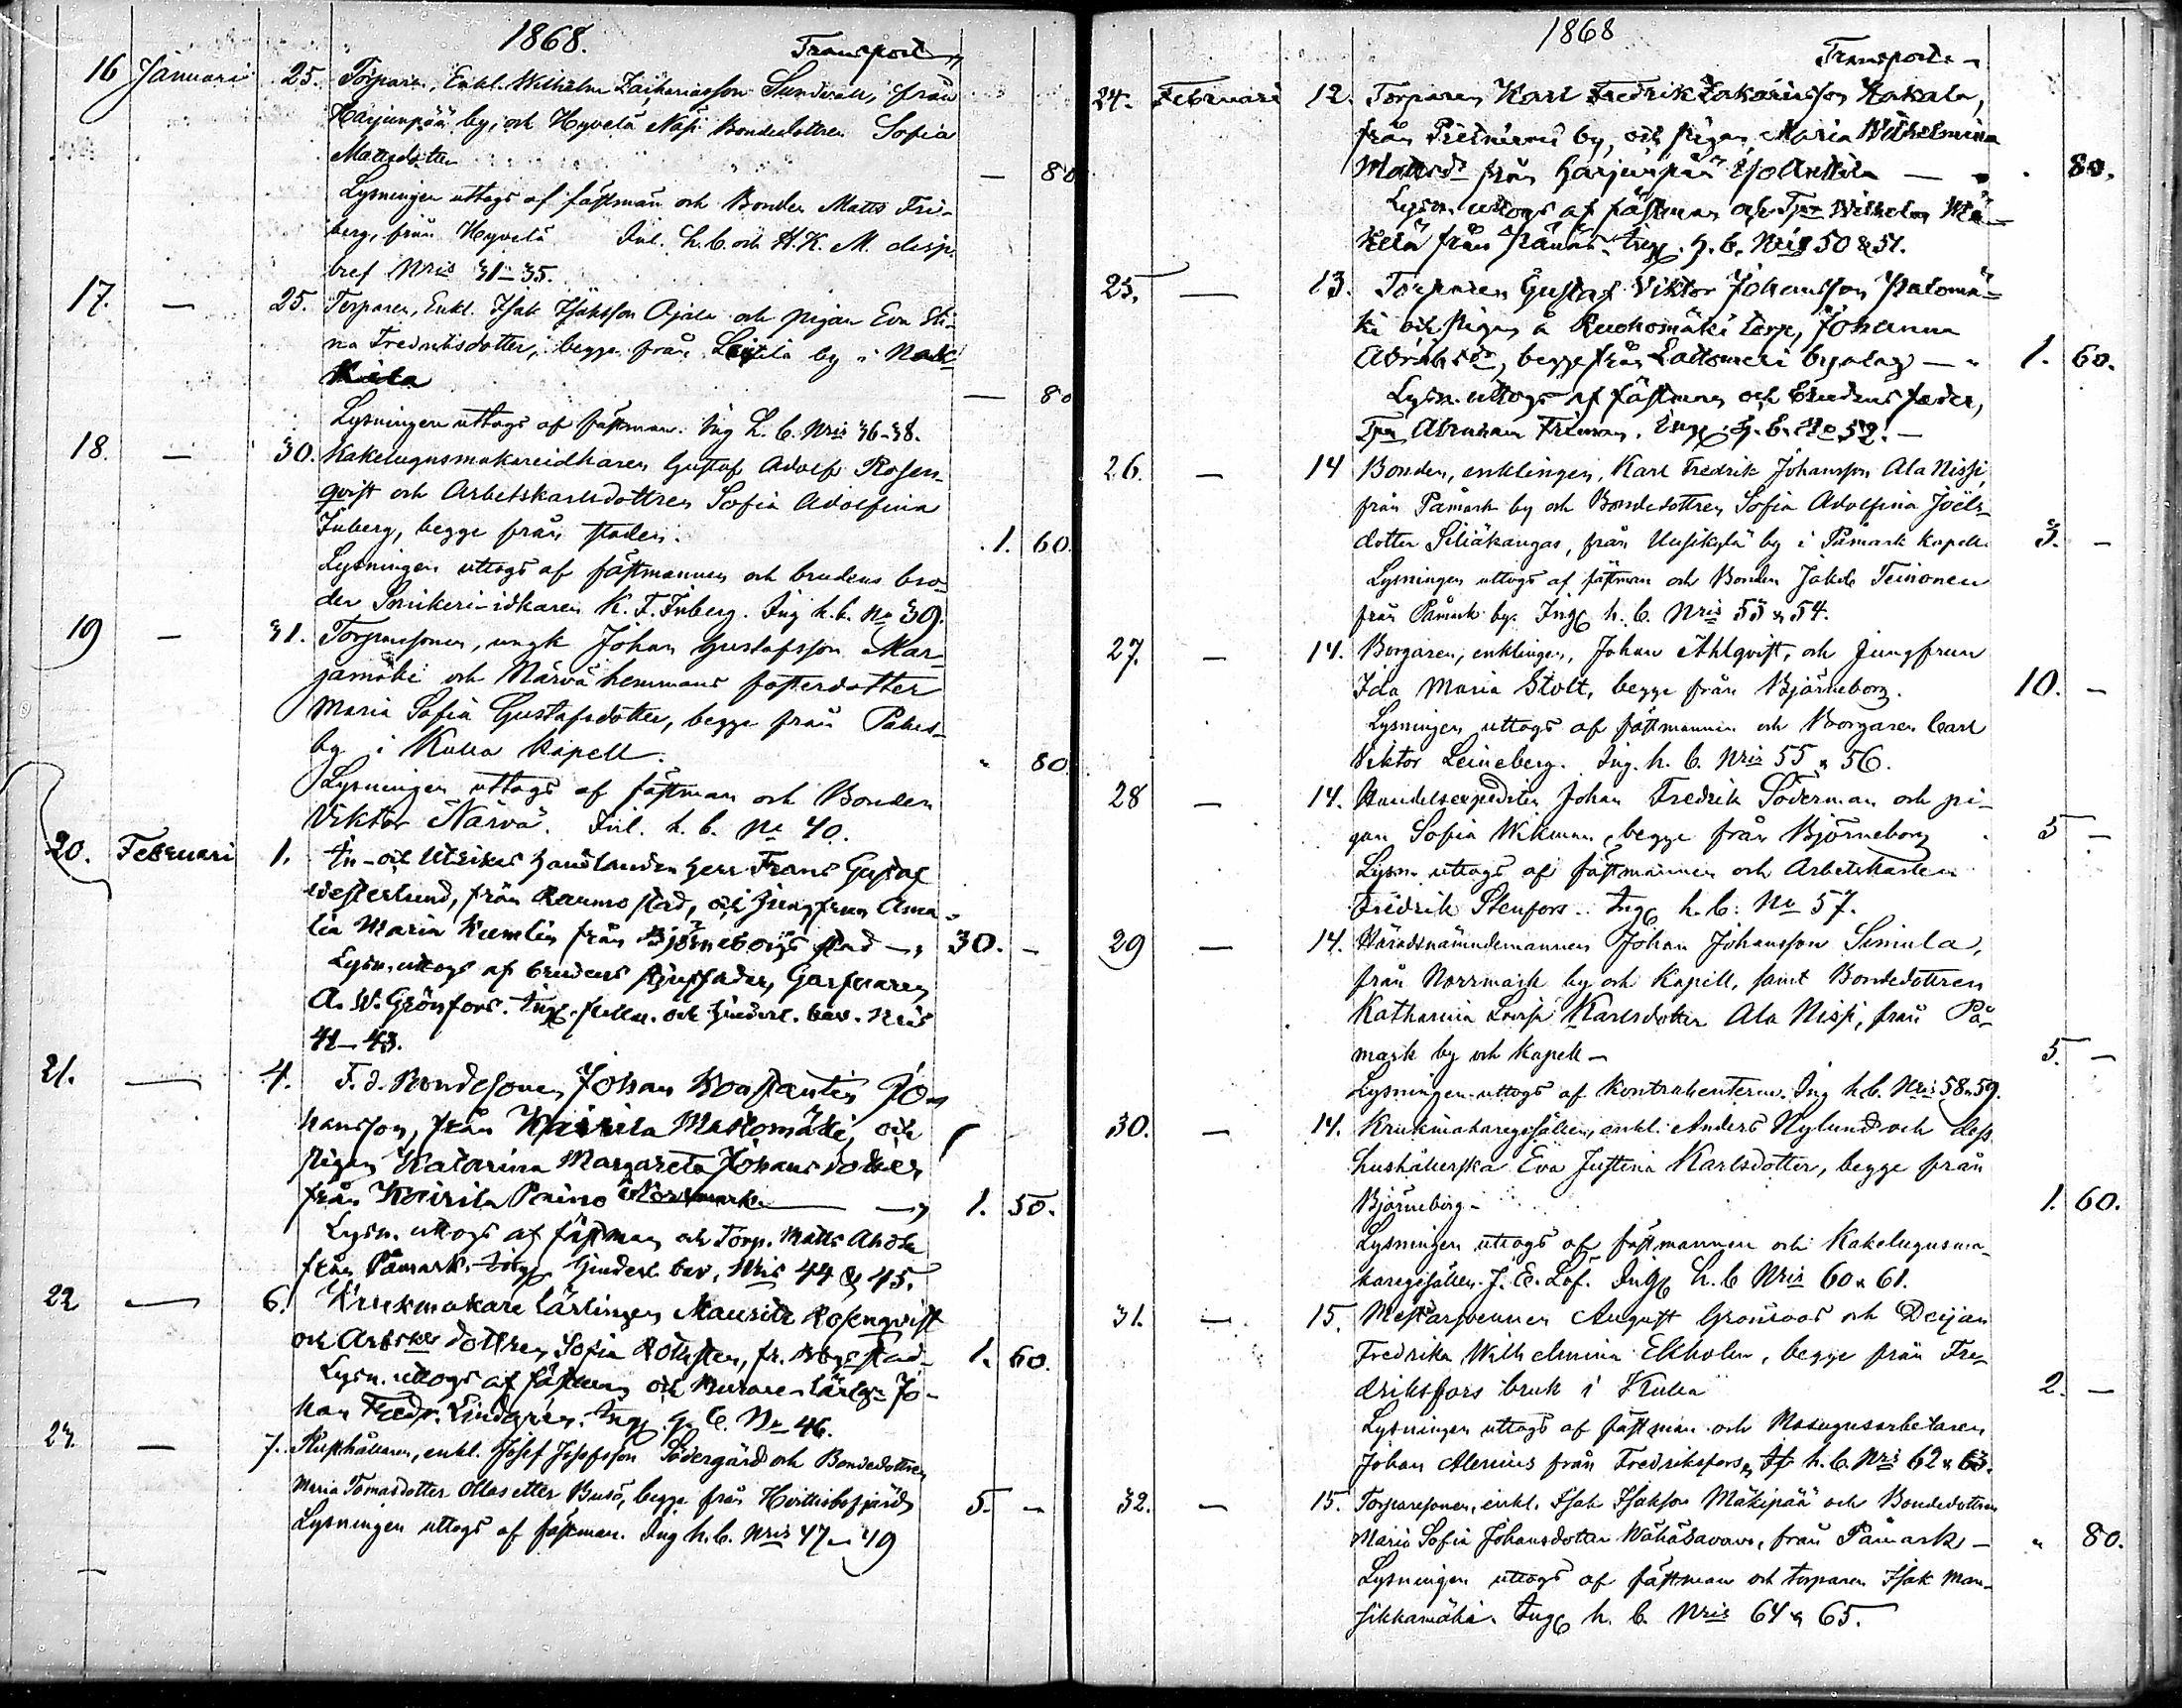 1868.
Transport
16 Januari 25. Torparen, Enkl. Wilhelm Zachariasson Sundvall, från
Harjunpää by, och Hyvelä Näsi Bondedottren Sofia
Mattsdotter — 80
Lysningen uttogs af fästman och Bonden Matts Fri-
berg, från Hyvelä Inl. h. b. och H.K.M. disp.
bref Nris 31–35.
17. — 25. Torparen, Enkl. Isak Isaksson Ajala och pigan Eva Sti-
na Fredriksdotter, begge från by i Nak-
kila — 80
Lysningen uttogs af fästman. Ing h. b. Nris 36-38.
18. — 30. Kakelugnsmakareidkaren Gustaf Adolf Rosen-
qvist och Arbetskarlsdottren Sofia Adolfina
Inberg, begge från staden. 1. 60.
Lysningen uttogs af fästmannen och brudens bro-
der Snikeri-idkaren K. F. Inberg. Ing h. b. No 39.
19 — 31. Torparesonen, ungk Johan Gustafsson Mar-
jamäki och Närvä hemmans fosterdotter
Maria Sofia Gustafsdotter, begge från
by i Kulla Kapell. " 80.
Lysningen uttogs af fästman och Bonden
Viktor Närvä. Inl. h. b. No 40.
20. Februari 1. In- och Utrikes Handlanden Herr Frans Gustaf
Westerlund, från Raumo stad, och Jungfrun Ama-
lia Maria Kumlin från Björneborgs stad — 30. —
Lysn. uttogs af brudens stjuffader, Garfvaren
A. W. Grönfors. Ing. och hinderl. bev. Nris
41–43.
21. — 4. F. d. Bondesonen Johan Konstantin Jo-
hansson, från Kairila Mattomäki, och
pigan Katarina Margareta Johansdotter
från Kairila Norrmark — 1. 50.
Lysn. uttogs af fästman och Torp. Matts
från Påmark. Ing hinderl. bev. Nris 44 & 45.
22 — 6. Krukmakare lärlingen Mauritz Rosenqvist
och Arbetsk dottren Sofia Rothsten, fr. B:bgs stad — 1. 60.
Lysn. uttogs af fästman och Murare-lärlgn Jo-
han Fredr. Lindgrén. Ing h. b. No 46.
23. — 7. enkl. Josef Josefsson Södergård och Bondedottren
Maria Tomasdotter eller Buså, begge från Hvittisbofjärd 5. —
Lysningen uttogs af fästman. Ing h. b. Nris 47–49
1868
Transport
24. Februari 12. Torparen Karl Fredrik Zakariasson Kakala,
från by, och pigan Maria Wilhelmina
Mattsdr från Harjunpää — 80.
Lysn. uttogs af fästman och Tpr Wilhelm Mä-
kelä från Ing. h. b. Nris 50 & 51.
25. — 13. Torparen Gustaf Viktor Johansson Palomä-
ki och pigan å Ruohomäki torp, Johanna
Abrahsdr, begge från Lattomeri byalag — 1. 60.
Lysn. uttogs af fästman och brudens fader,
Tpn Abraham Friman. Ing h. b. No 52. —
26. — 14 Bonden, enklingen, Karl Fredrik Johansson Ala Nissi,
från Påmark by och Bondedottren Sofia Adolfina Joels-
dotter Siliäkangas, från Uusikylä by i Påmark kapell 3. —
Lysningen uttogs af fästman och Bonden Jakob Teinonen
från Påmark by. Ing h. b. Nris 53 & 54.
27. — 14. Borgaren, enklingen, Johan Ahlqvist, och Jungfrun
Ida Maria Stolt, begge från Björneborg. 10. —
Lysningen uttogs af fästmannen och Borgaren Carl
Viktor Leineberg. Ing. h. b. Nris 55 & 56.
28 — 14. Handelsexpediten Johan Fredrik Söderman och pi-
gan Sofia Wikman, begge från Björneborg 5 —
Lysn. uttogs af fästmannen och Arbetskarlen
Fredrik Stenfors. Ing h. b. No 57.
29 — 14. Häradsnämndemannen Johan Johansson Simula,
från Norrmark by och Kapell, samt Bondedottren
Katharina Lovisa Karlsdotter Ala Nissi, från På-
mark by och kapell — 5. —
Lysningen uttogs af Kontrahenterna. Ing h. b. Nris 58 & 59.
30. — 14. Krukmakaregesällen, enkl. Anders Nylund och dess
hushållerska Eva Justina Karlsdotter, begge från
Björneborg — 1. 60.
Lysningen uttogs af fästmannen och Kakelugnsma-
karegesällen J. E. Löf. Ing h. b. Nris 60 & 61.
31. — 15. Mästarsvennen August Granroos och Dejan
Fredrika Wilhelmina Ekholm, begge från Fre-
driksfors bruk i Kulla 2. —
Lysningen uttogs af fästman och Masugnsarbetaren
Johan Alenius från Fredriksfors. h. b. Nris 62 & 63.
32. — 15. Torparesonen, enkl. Isak Isaksson Mäkipää och Bondedottren
Maria Sofia Johansdotter Wähäsavavo, från Påmark — " 80.
Lysningen uttogs af fästman och torparen Isak Man-
sikkamäki. Ing h. b. Nris 64 & 65.